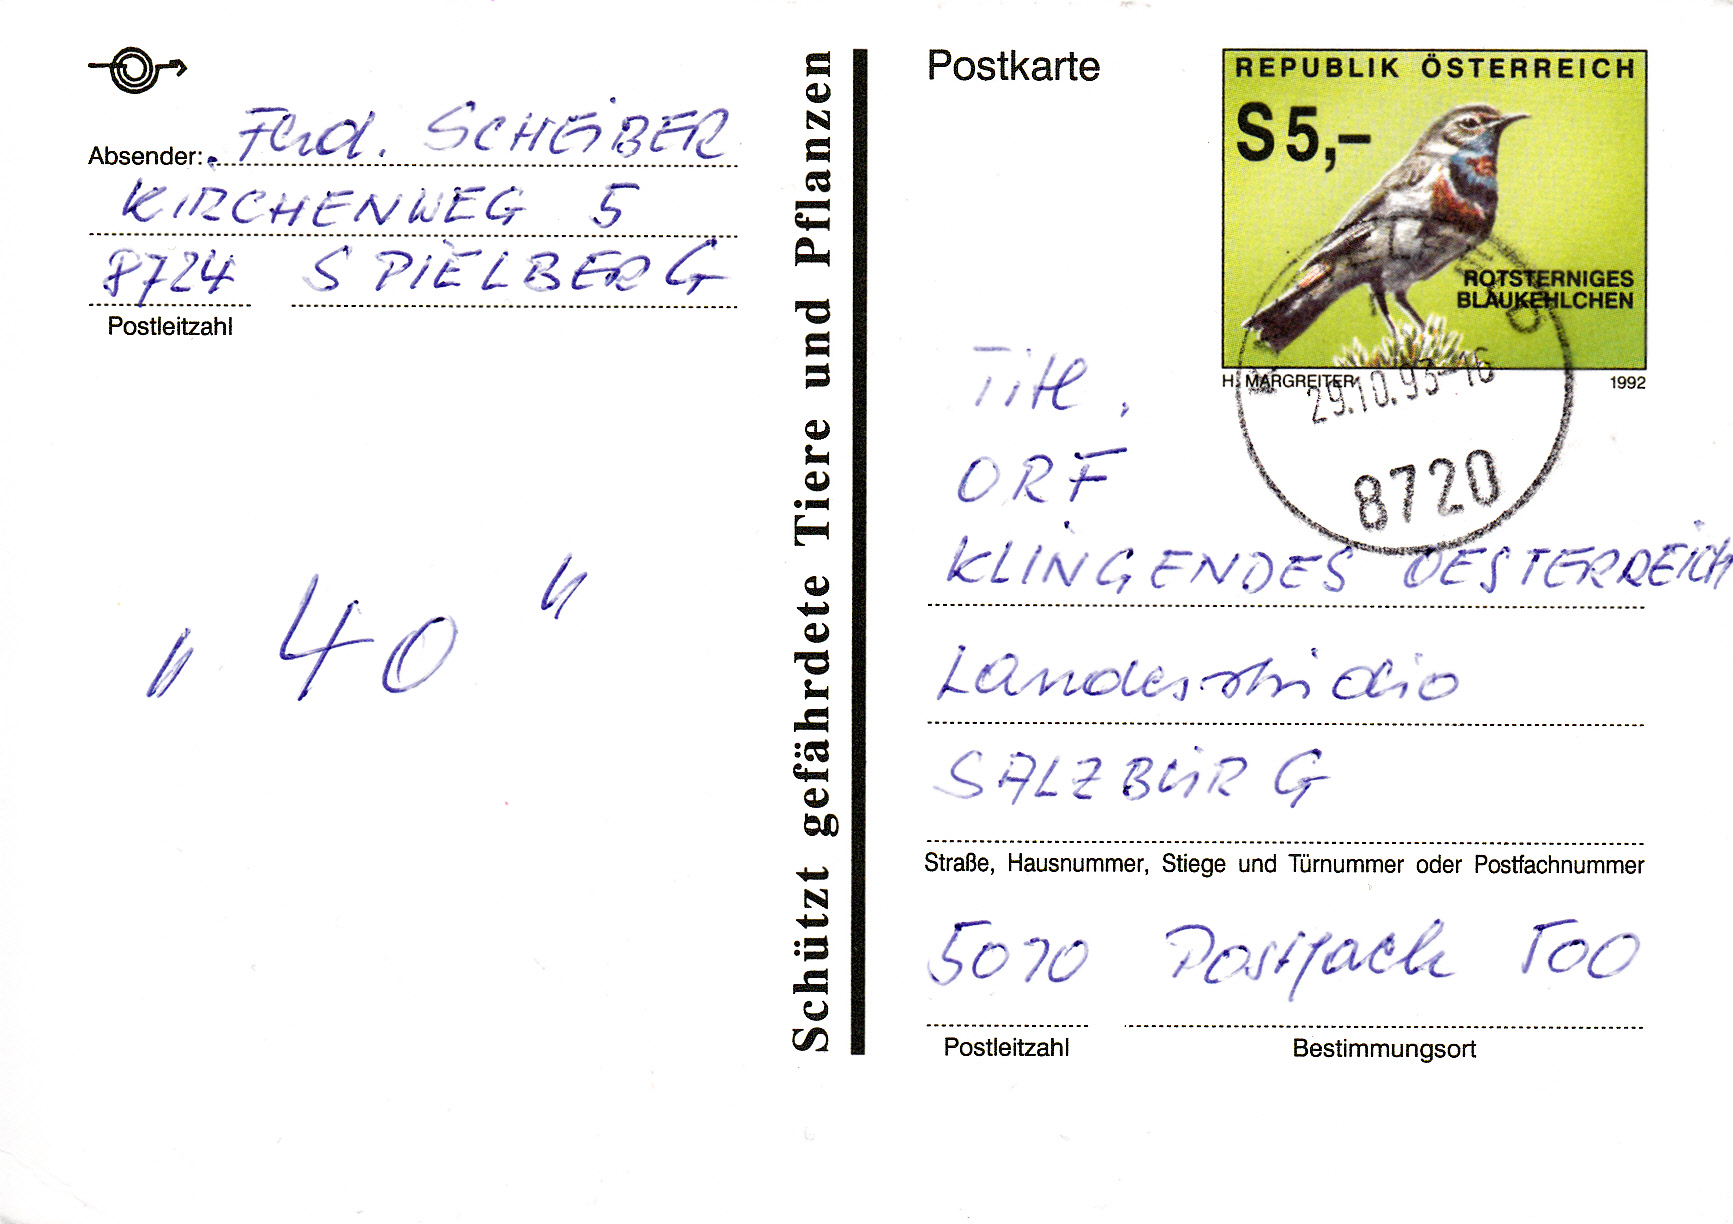 Absender: Ferd. SCHEIBER
KIRCHENWEG 5
8724 SPIELBERG
Postleitzahl
„40“
Schützt gefährdete Tiere und Pflanzen
Postkarte
REPUBLIK ÖSTERREICH
S5,–
ROTSTERNIGES
BLAUKEHLCHEN
H. MARGREITER 1992
29.10.93-16
8720
Titl.
ORF
KLINGENDES OESTERREICH
Landesstudio
SALZBURG
Straße, Hausnummer, Stiege und Türnummer oder Postfachnummer
5010 Postfach 500
Postleitzahl Bestimmungsort